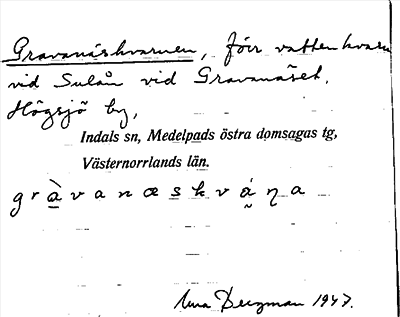 Gravanäskvarnen, förr vattenkvarn
vid Sulån vid Gravanäset,
Högsjö by,
Indals sn, Medelpads östra domsagas tg,
Västernorrlands län.
gràvanæskváṇa
Bergman 1947.